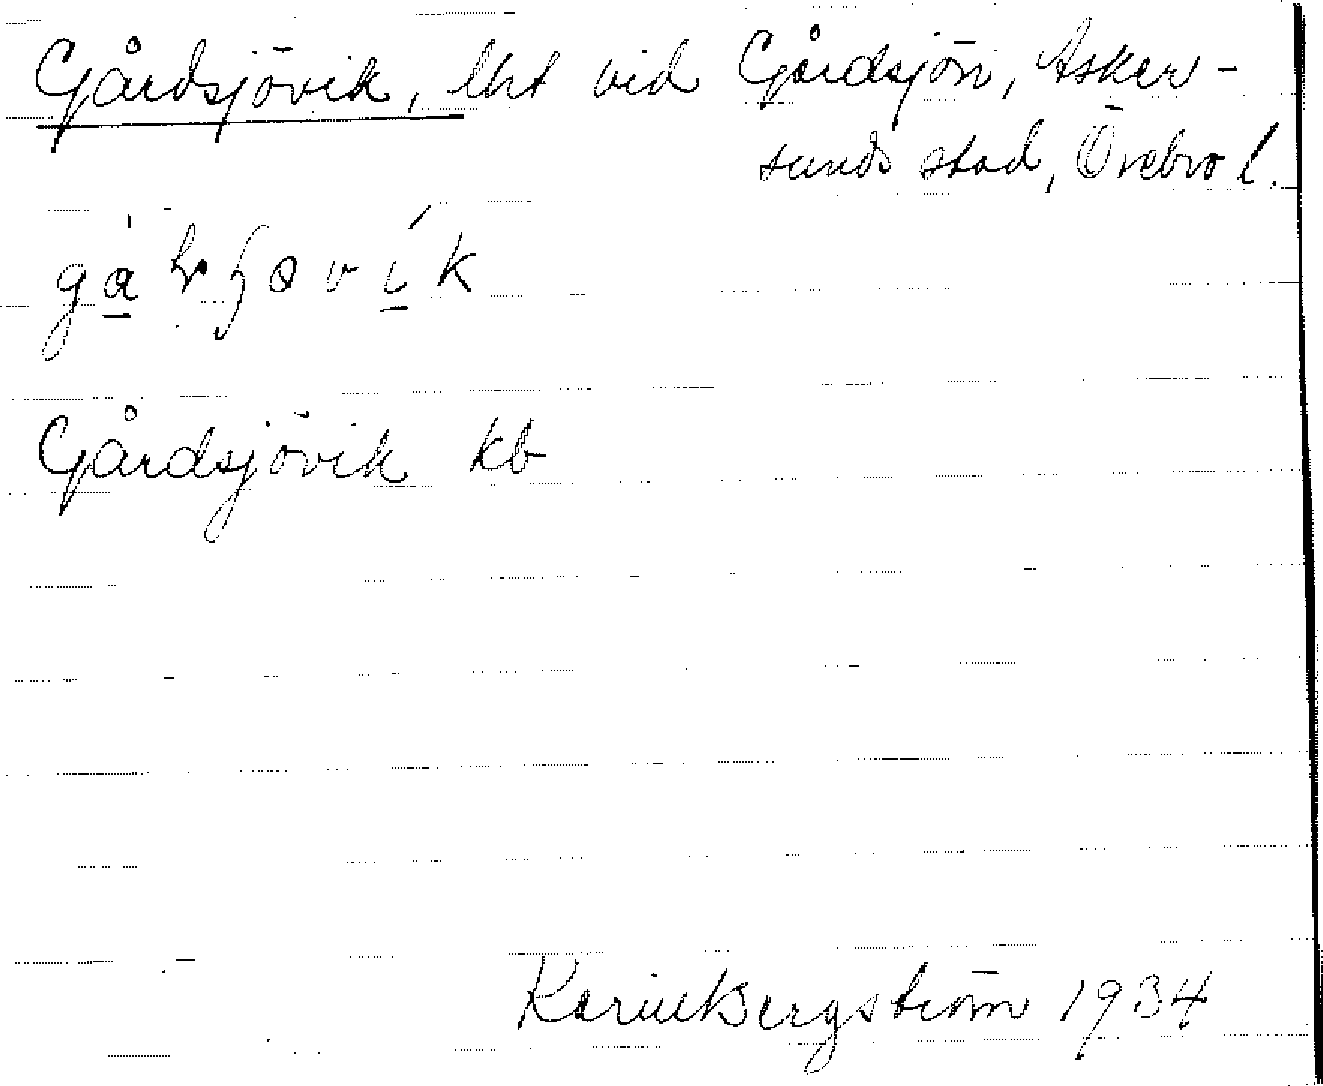 Gårdsjövik, lht vid Gårdsjön, Asker-
sunds stad, Örebro l.
Gårdsjövik kb
Karin Bergström 1934